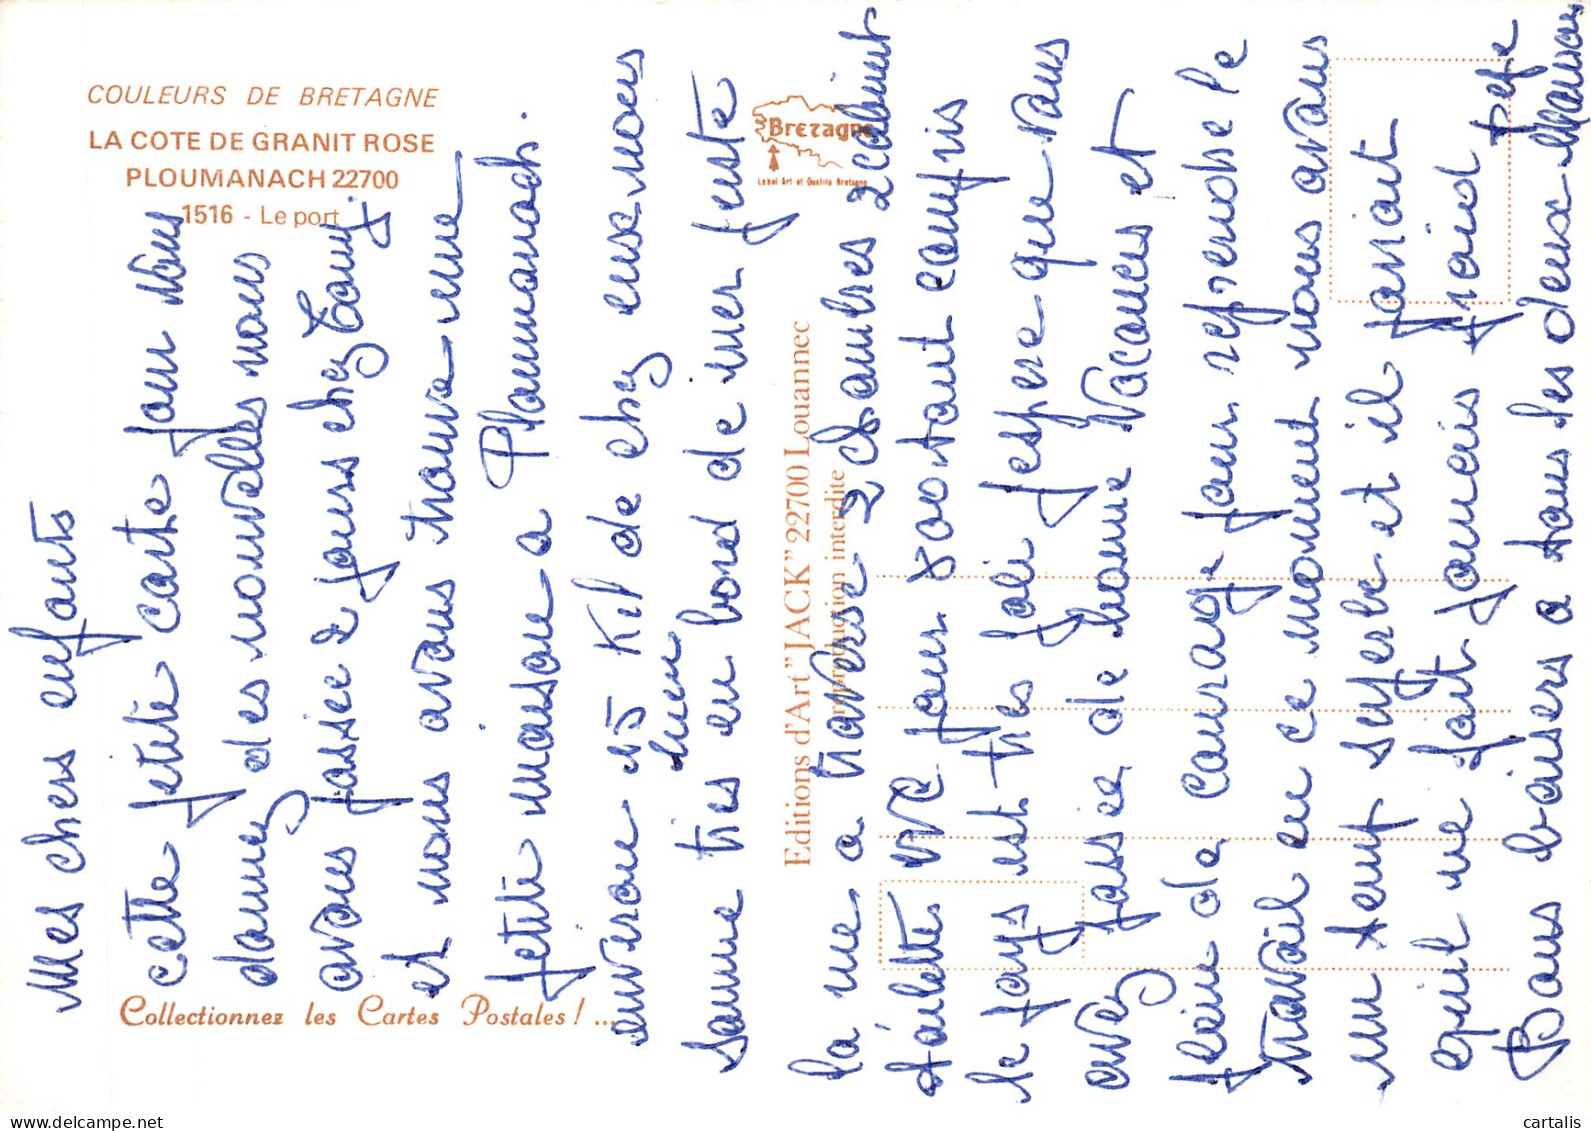 COULEURS DE BRETAGNE
LA COTE DE GRANIT ROSE
PLOUMANACH 22700
1516 - Le port
Bretagne
Label Art et Qualité Bretagne
Editions d'Art "JACK" 22700 Louannec
reproduction interdite
Collectionnez les Cartes Postales! ...
Mes chers enfants
cette petite carte pour vous
donnez des nouvelles nous
avons passée 2 jours chez Tamy
et nous avons trouve une
petite maison a Ploumanach.
environ 15 Kil de chez eux nous
somme tres en bord de mer juste
la rue a traverse 2 chambres 2 cabinet
toilettes WC pour 800 tout compris
le pays est tres joli j'espere que vous
avez passée de bonne Vacances et
plein de courage pour reprendre le
travail en ce moment nous avons
un temt superbe et il parait
qu'il ne fait jamais froid
Bons baisers a tous les deux Maman
Pepe
cartalis
delcampe.net